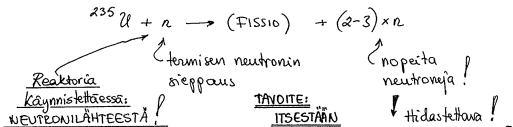 ²³⁵U + n → (FISSIO) + (2-3) × n
termisen neutronin
sieppaus
nopeita
neutroneja!
Reaktoria
käynnistettäessä:
NEUTRONILÄHTEESTÄ!
TAVOITE:
ITSESTÄÄN
! Hidastettava!